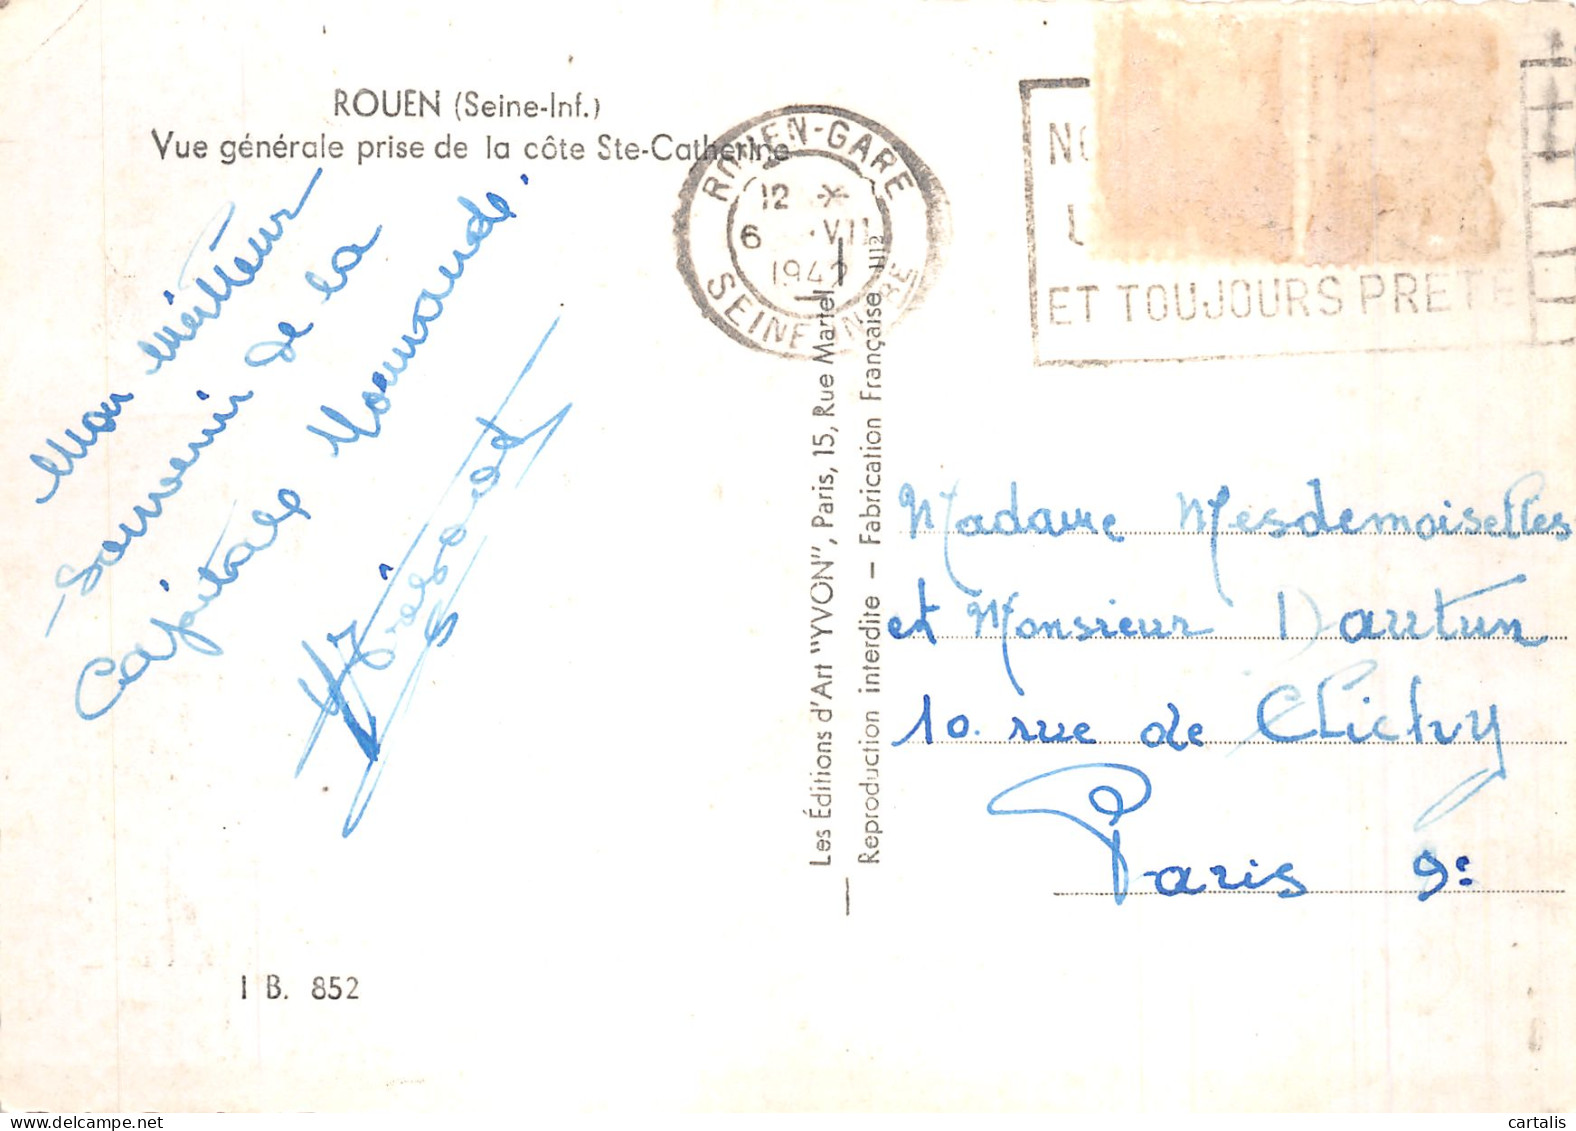 ROUEN (Seine-Inf.)
Vue générale prise de la côte Ste-Catherine
Mon meilleur
Souvenir de la
Capitale Normande.
I B. 852
Les Éditions d'Art "YVON", Paris, 15, Rue Martel
Reproduction interdite — Fabrication Française
ROUEN-GARE
12 *
6 VII
SEINE INFRE
ET TOUJOURS PRETE
Madame Mesdemoiselles
et Monsieur Dautun
10. rue de Clichy
Paris 9e
cartalis
delcampe.net